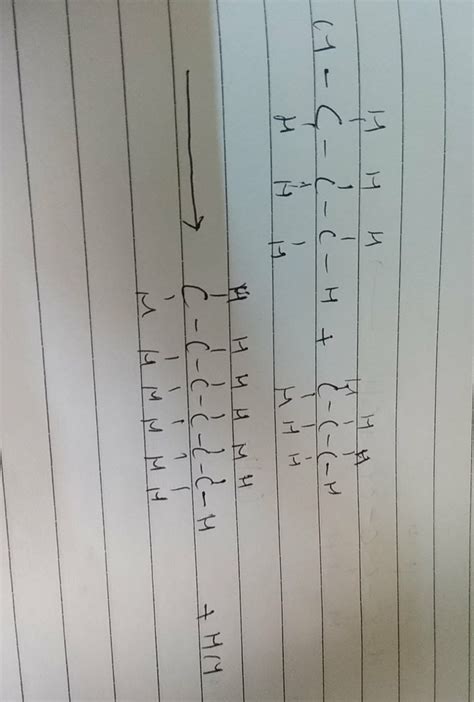 H H H H H H
H - C - C - C - H + C - C - C - H
H H H H H H
H H H H H H
→ C - C - C - C - C - C - H + HH
H H H H H H